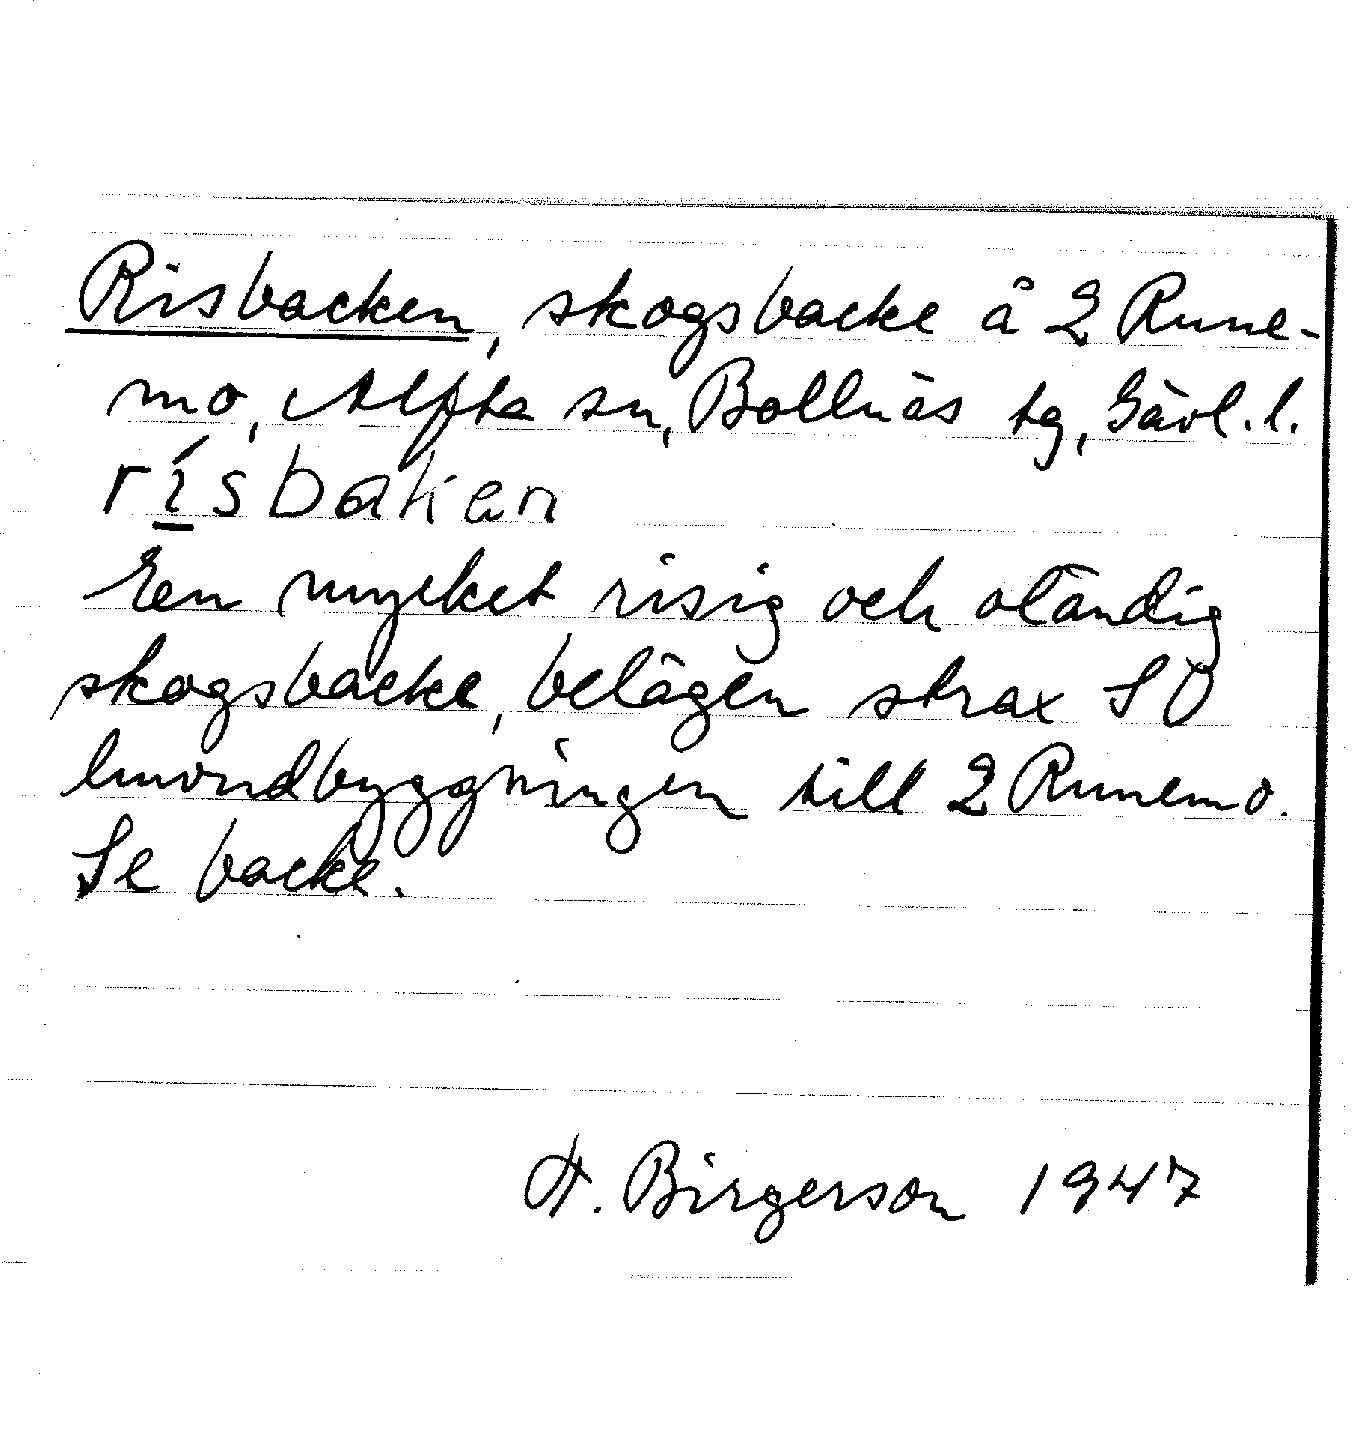 Risbacken, skogsbacke å 2 Rune-
mo, Alfta sn, Bollnäs tg, Gävl.l.
rísbakan
En mycket risig och oländig
skogsbacke, belägen strax SO
huvudbyggningen till 2 Runemo.
Se backe.
H. Birgerson 1947